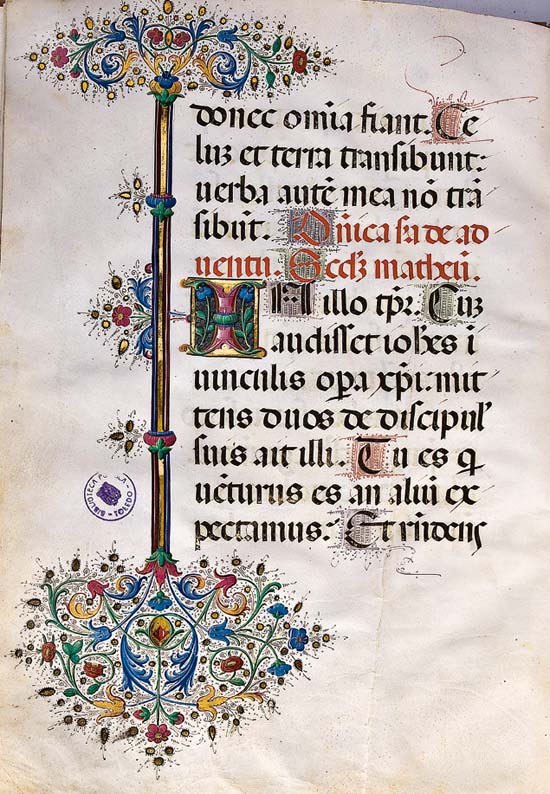 donec omīa fiant. Ce
luʒ et terra transibunt:
uerba autē mea nō trā
sibūt. Dn̄ica s̄a de ad
uentu. Scdʒ matheū.
IN illo tp̄r. Cuʒ
audisset ioh̄es ī
uinculis op̄a xp̄i: mit
tens duos de discipul'
suis ait illi. Tu es q̄
uēturus es an aliū ex
pectamus? Et rn̄dens
BIBLIOTECA
TOLEDO